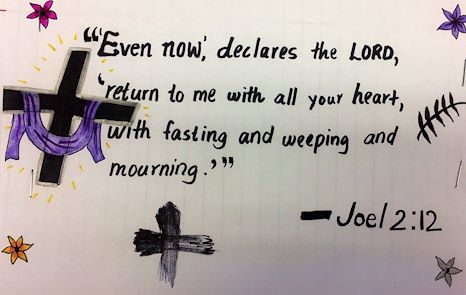 "'Even now,' declares the LORD,
'return to me with all your heart,
with fasting and weeping and
mourning.'"
— Joel 2:12